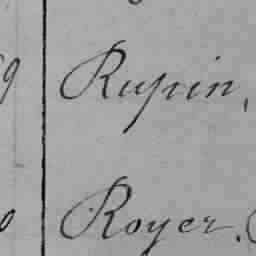 9 Rupin,
0 Royer. (